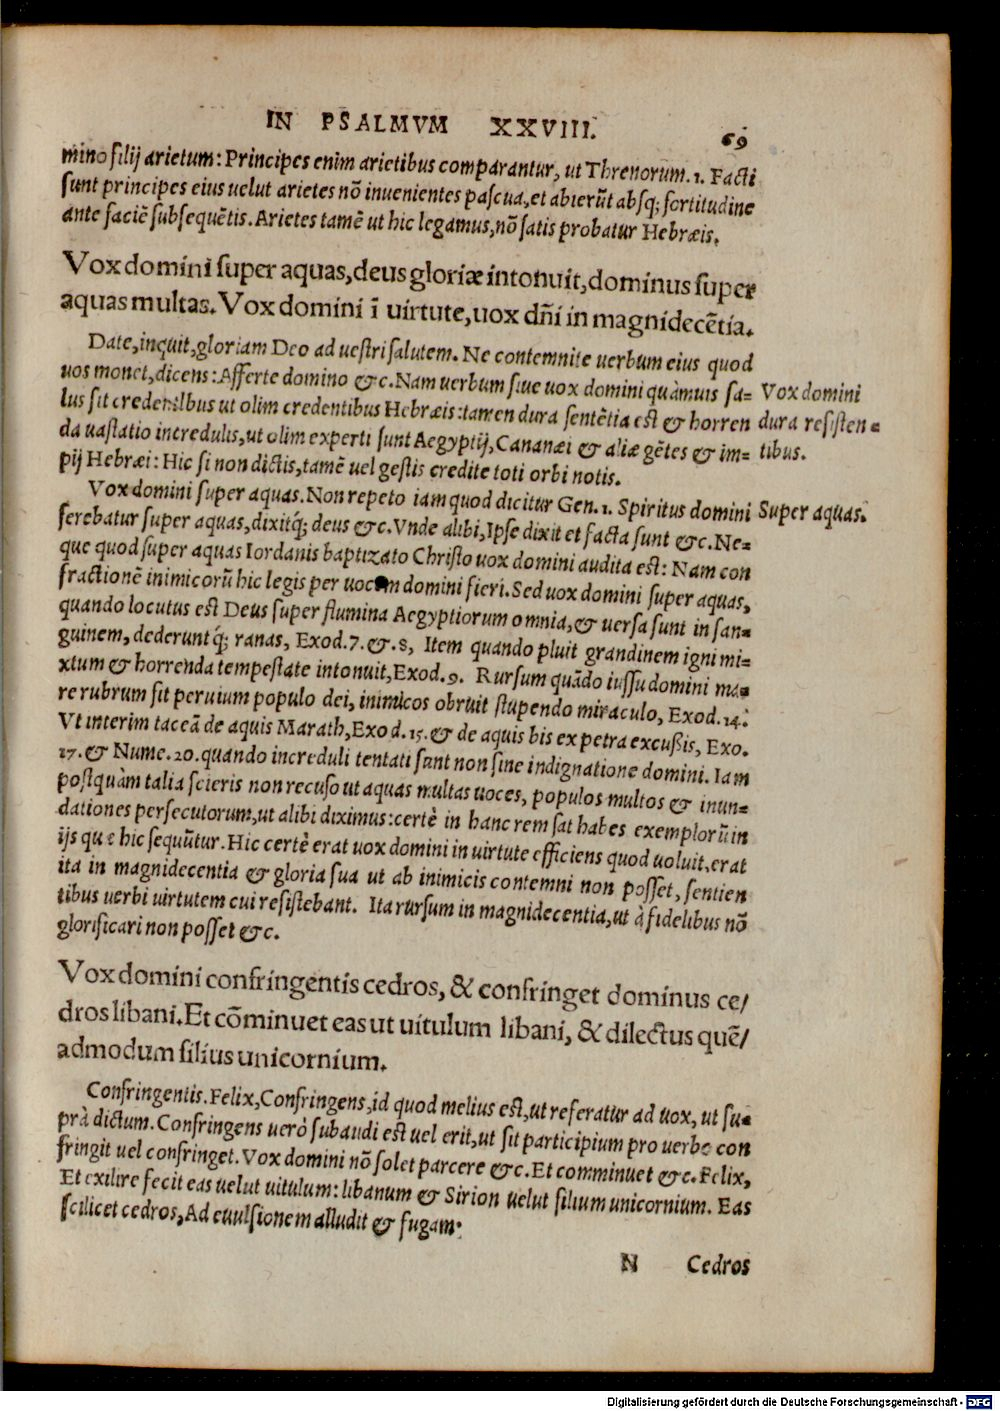 IN PSALMVM XXVIII. 69
mino filij arietum: Principes enim arietibus comparantur, ut Threnorum. 1. Facti
sunt principes eius uelut arietes nõ inuenientes pascua, et abierũt absq; fortitudine
ante faciẽ subsequẽtis. Arietes tamẽ ut hic legamus, nõ satis probatur Hebræis.
Vox domini super aquas, deus gloriæ intonuit, dominus super
aquas multas. Vox domini ĩ uirtute, uox dñi in magnidecẽtia.
Date, inquit, gloriam Deo ad uestri salutem. Ne contemnite uerbum eius quod
uos monet, dicens: Afferte domino &c. Nam uerbum siue uox domini quàmuis sa= Vox domini
lus sit credentibus ut olim credentibus Hebræis: tamen dura sentẽtia est & horren dura resisten=
da uastatio incredulis, ut olim experti sunt Aegyptij, Cananæi & aliæ gẽtes & im= tibus.
pij Hebræi: Hic si non dictis, tamẽ uel gestis credite toti orbi notis.
Vox domini super aquas. Non repeto iam quod dicitur Gen. 1. Spiritus domini Super aquas.
ferebatur super aquas, dixitq́; deus &c. Vnde alibi, Ipse dixit et facta sunt &c. Ne=
que quod super aquas Iordanis baptizato Christo uox domini audita est: Nam con
fractionẽ inimicorũ hic legis per uocem domini fieri. Sed uox domini super aquas,
quando locutus est Deus super flumina Aegyptiorum omnia, & uersa sunt in san=
guinem, dederuntq́; ranas, Exod. 7. & . 8, Item quando pluit grandinem igni mi=
xtum & horrenda tempestate intonuit, Exod. 9. Rursum quãdo iussu domini ma=
re rubrum fit peruium populo dei, inimicos obruit stupendo miraculo, Exod. 14.
Vt interim taceã de aquis Marath, Exod. 15. & de aquis bis ex petra excußis, Exo.
17. & Nume. 20. quando increduli tentati sunt non sine indignatione domini. Iam
postquàm talia scieris non recuso ut aquas multas uoces, populos multos & inun=
dationes persecutorum, ut alibi diximus: certè in hanc rem sat habes exemplorũ in
ijs que hic sequũtur. Hic certè erat uox domini in uirtute efficiens quod uoluit, erat
ita in magnidecentia & gloria sua ut ab inimicis contemni non posset, sentien
tibus uerbi uirtutem cui resistebant. Ita rursum in magnidecentia, ut à fidelibus nõ
glorificari non posset &c.
Vox domini confringentis cedros, & confringet dominus ce/
dros libani. Et cõminuet eas ut uitulum libani, & dilectus quẽ/
admodum filius unicornium.
Confringentis. Felix, Confringens, id quod melius est, ut referatur ad uox, ut su=
prà dictum. Confringens uerò subaudi est uel erit, ut sit participium pro uerbo con
fringit uel confringet. Vox domini nõ solet parcere &c. Et comminuet &c. Felix,
Et exilire fecit eas uelut uitulum: libanum & Sirion uelut filium unicornium. Eas
scilicet cedros, Ad euulsionem alludit & fugam:
N Cedros
Digitalisierung gefördert durch die Deutsche Forschungsgemeinschaft - DFG